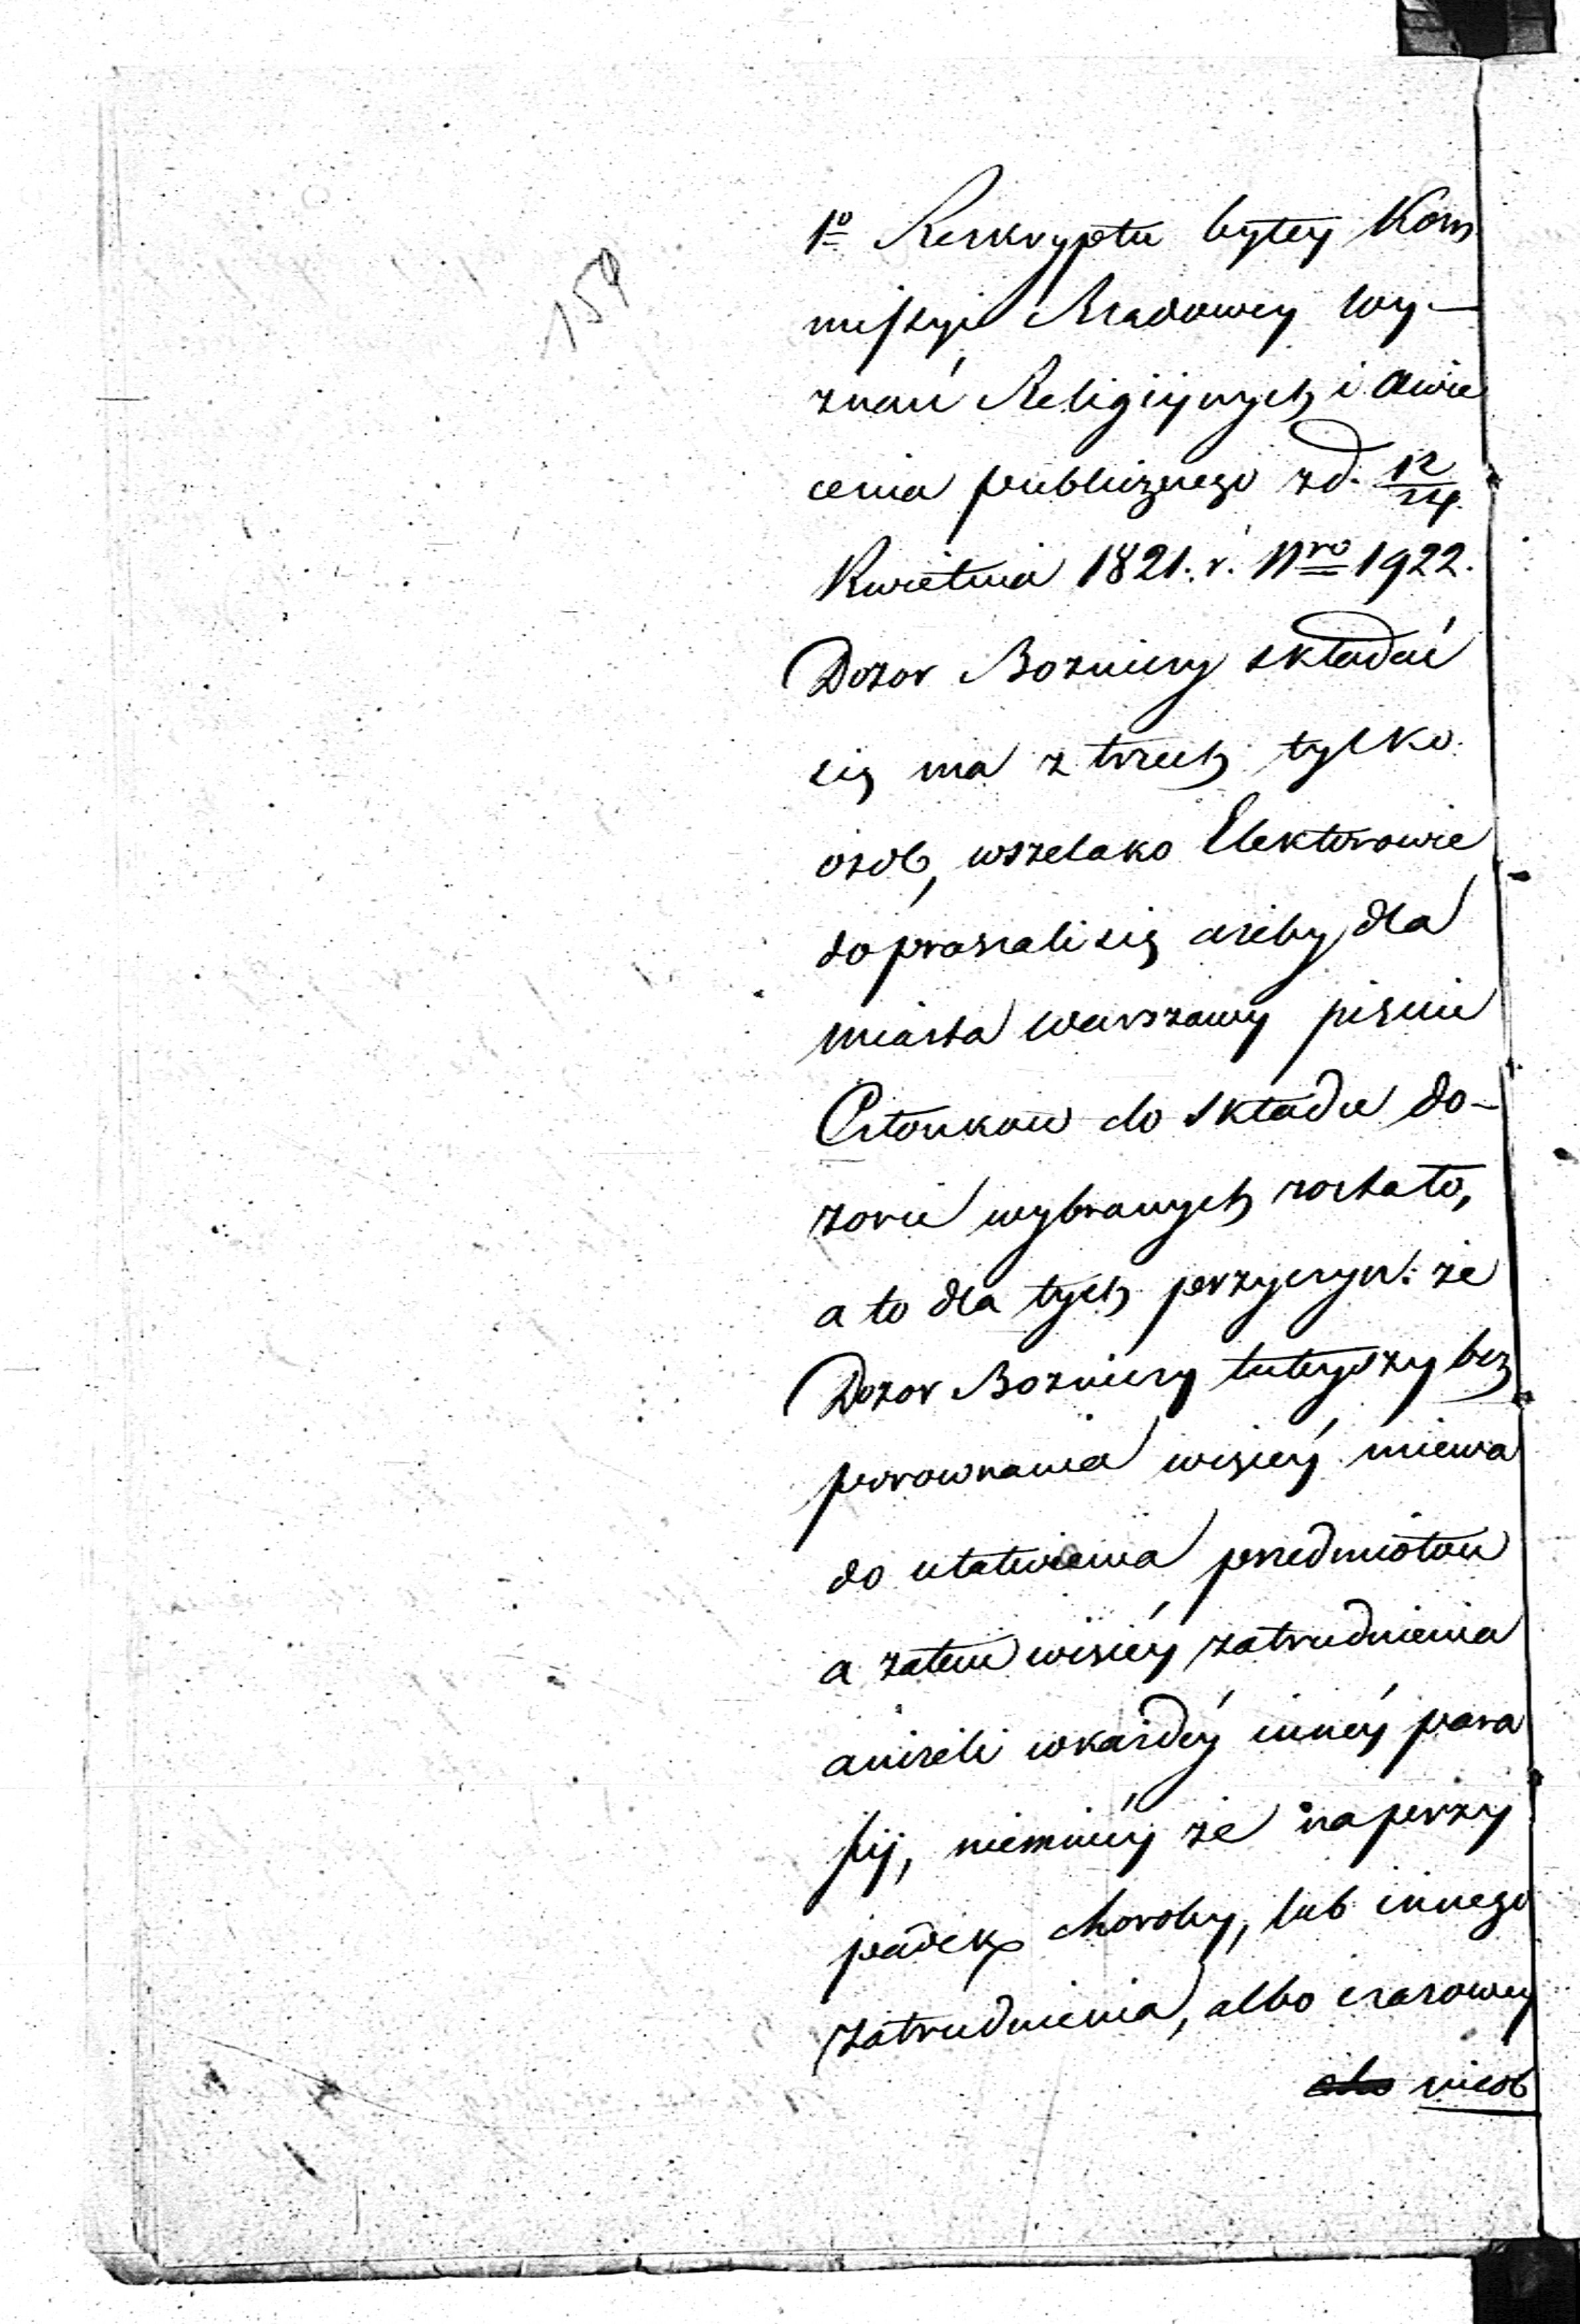 159
1º Reskryptu byłey Kom
missyi Rządowey Wy-
znań Religiijnych i Oświe
cenia publicznego z d. 12/24
Kwietnia 1821. r. Nro 1922.
Dozor Bozniczy składać
się ma z trzech tylko
osob, wszelako Elektorowie
dopraszali się ażeby dla
miasta Warszawy pięciu
Członkow do składu do-
zoru wybranych zostało,
a to dla tych przyczyn: że
Dozor Bozniczy tuteyszy bez
porownania więcéy miewa
do ułatwienia przedmiotow
a zatem więcéy zatrudnienia
aniżeli w każdéy innéy para
fij, niemniéy że na przy
padek choroby, lub innego
zatrudnienia, albo czasowey
nieob